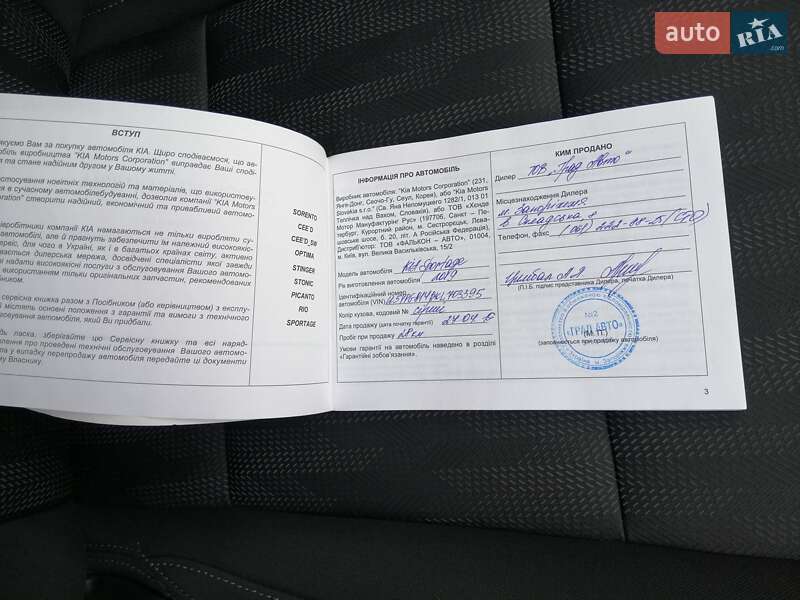 auto RIA.com
ВСТУП
якуємо Вам за покупку автомобіля KIA. Щиро сподіваємося, що ав-
мобіль виробництва "KIA Motors Corporation" виправдає Ваші споді-
та стане надійним другом у Вашому житті.
тосування новітніх технологій та матеріалів, що використову-
в сучасному автомобілебудуванні, дозволив компанії "KIA Motors
ration" створити надійний, економічний та привабливий автомо-
виробники компанії KIA намагаються не тільки виробляти су-
автомобілі, але й прагнуть забезпечити їм належний високоякіс-
сервіс, для чого в Україні, як і в багатьох країнах світу, активно
ається дилерська мережа, досвідчені спеціалісти якої завжди
надати високоякісні послуги з обслуговування Вашого автомо-
використанням тільки оригінальних запасних частин, рекомендо-
сервісна книжка разом з Посібником (або керівництвом) з експлу-
містять основні положення з гарантії та вимоги з технічного
говування автомобіля, який Ви придбали.
дь ласка, зберігайте цю Сервісну книжку та всі наряд-
про проведені технічні обслуговування Вашого автомо-
у випадку перепродажу автомобіля передайте ці документи
му Власнику.
SORENTO
CEE'D
CEE'D_SW
OPTIMA
STINGER
STONIC
PICANTO
RIO
SPORTAGE
ІНФОРМАЦІЯ ПРО АВТОМОБІЛЬ
Виробник автомобіля: "Kia Motors Corporation" (231,
Янге-Донг, Сеочо-Гу, Сеул, Корея), або "Kia Motors
Slovakia s.r.o." (Св. Яна Непомуцкего 1282/1, 013 01
Тепличка над Вахом, Словакія), або ТОВ «Хенде
Мотор Мануфактуринг Рус» (197706, Санкт – Пе-
тербург, Курортний район, м. Сестрорецьк, Лева-
шовське шосе, б. 20, літ. А (Російська Федерація),
Дистриб'ютор: ТОВ «ФАЛЬКОН – АВТО», 01004,
м. Київ, вул. Велика Васильківська, 15/2
Модель автомобіля KIA Sportage
Рік виготовлення автомобіля 2019
Ідентифікаційний номер
автомобіля (VIN)
Колір кузова, кодовий №
Дата продажу (дата початку гарантії)
Пробіг при продажу 28 км
Умови гарантії на автомобіль наведено в розділі
«Гарантійні зобов'язання».
КИМ ПРОДАНО
Дилер ТОВ „Град Авто"
Місцезнаходження Дилера
Телефон, факс
(П.І.Б. підпис представника Дилера, печатка Дилера)
№2
«ГРАД АВТО»
(М.П.)
(заповнюється при продажу автомобіля)
3